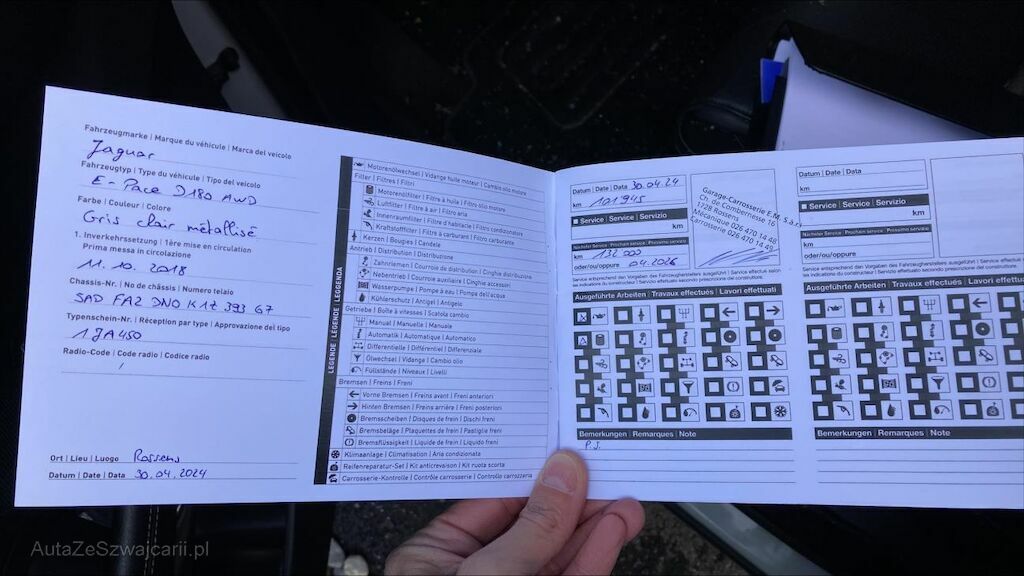 Fahrzeugmarke | Marque du véhicule | Marca del veicolo
Jaguar
Fahrzeugtyp | Type du véhicule | Tipo del veicolo
E-Pace D180 AWD
Farbe | Couleur | Colore
Gris clair métallisé
1. Inverkehrssetzung | 1ère mise en circulation
Prima messa in circolazione
11.10.2018
Chassis-Nr. | No de châssis | Numero telaio
SAD FA2 DN0 K1Z 393 67
Typenschein-Nr. | Réception par type | Approvazione del tipo
1JA450
Radio-Code | Code radio | Codice radio
/
Ort | Lieu | Luogo Rossens
Datum | Date | Data 30.04.2024
LEGENDE | LÉGENDE | LEGGENDA
Motorenölwechsel | Vidange huile moteur | Cambio olio motore
Filter | Filtres | Filtri
Motorenölfilter | Filtre à huile | Filtro olio motore
Luftfilter | Filtre à air | Filtro aria
Innenraumfilter | Filtre d'habitacle | Filtro condizionatore
Kraftstofffilter | Filtre à carburant | Filtro carburante
Kerzen | Bougies | Candele
Antrieb | Distribution | Distribuzione
Zahnriemen | Courroie de distribution | Cinghie distribuzione
Nebentrieb | Courroie auxiliaire | Cinghie accessori
Wasserpumpe | Pompe à eau | Pompa dell'acqua
Kühlerschutz | Antigel | Antigelo
Getriebe | Boîte à vitesses | Scatola cambio
Manual | Manuelle | Manuale
Automatik | Automatique | Automatico
Differentielle | Différentiel | Differenziale
Ölwechsel | Vidange | Cambio olio
Füllstände | Niveaux | Livelli
Bremsen | Freins | Freni
Vorne Bremsen | Freins avant | Freni anteriori
Hinten Bremsen | Freins arrière | Freni posteriori
Bremsscheiben | Disques de frein | Dischi freni
Bremsbeläge | Plaquettes de frein | Pastiglie freni
Bremsflüssigkeit | Liquide de frein | Liquido freni
Klimaanlage | Climatisation | Aria condizionata
Reifenreparatur-Set | Kit anticrevaison | Kit ruota scorta
Carrosserie-Kontrolle | Contrôle carrosserie | Controllo carrozzeria
Datum | Date | Data 30.04.24
km 101945
Service | Service | Servizio
km
Nächster Service | Prochain service | Prossimo servizio
km 132 000
oder/ou/oppure 04.2026
Garage-Carrosserie E.M. S.à r.l.
Ch. de Combernesse 16
1728 Rossens
Mécanique 026 470 14 48
Carrosserie 026 470 14 49
Service entsprechend den Vorgaben des Fahrzeugherstellers ausgeführt | Service effectué selon
les indications du constructeur | Servizio effettuato secondo prescrizione del costruttore.
Ausgeführte Arbeiten | Travaux effectués | Lavori effettuati
Bemerkungen | Remarques | Note
P.S.
Datum | Date | Data
km
Service | Service | Servizio
km
Nächster Service | Prochain service | Prossimo servizio
km
oder/ou/oppure
Service entsprechend den Vorgaben des Fahrzeugherstellers ausgeführt | Service effectué
les indications du constructeur | Servizio effettuato secondo prescrizione del costruttore.
Ausgeführte Arbeiten | Travaux effectués | Lavori
Bemerkungen | Remarques | Note
AutaZeSzwajcarii.pl